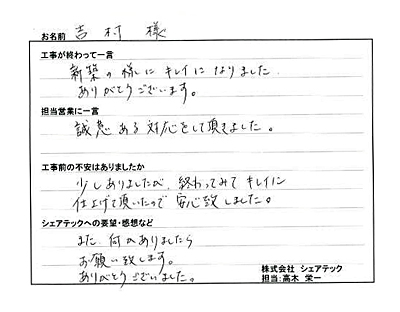 お名前 吉村 様
工事が終わって一言
新築の様にキレイになりました
ありがとうございます。
担当営業に一言
誠意ある対応をして頂きました。
工事前の不安はありましたか
少しありましたが、終わってみてキレイに
仕上げて頂いたので安心致しました。
シェアテックへの要望・感想など
また何かありましたら
お願い致します。
ありがとうございました。
株式会社 シェアテック
担当:高木 栄一